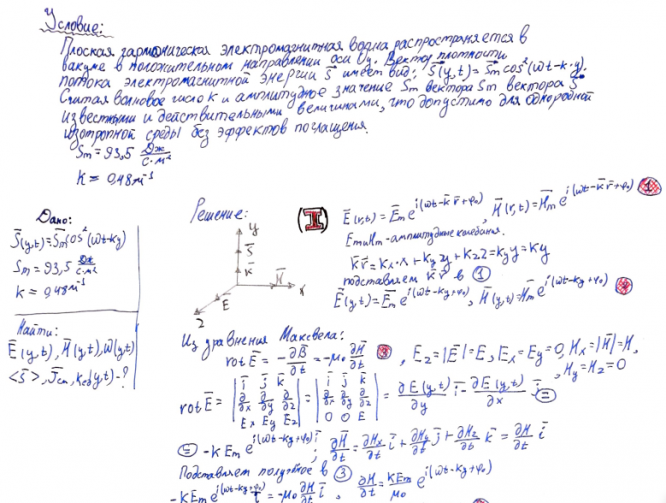 Условие:
Плоская гармоническая электромагнитная волна распространяется в
вакуме в положительном направлении оси Oy. Вектор плотности
потока электромагнитной энергии S имеет вид: S⃗(y,t)=S⃗m cos²(ωt-k·y).
Считая волновое число k и амплитудное значение Sm вектора Sm вектора S⃗
известными и действительными величинами, что допустимо для однородной
изотропной среды без эффектов поглащения.
Sm = 93,5 Дж/с·м²
k = 0,48 м⁻¹
Дано:
S⃗(y,t)=S⃗m cos²(ωt-ky)
Sm = 93,5 Дж/с·м²
k = 0,48 м⁻¹
Найти:
E⃗(y,t), H⃗(y,t), w(y,t)
<S⃗>, Jсм, (y,t)-?
Решение:
y
S⃗
k⃗
H⃗
x
E⃗
z
(I)
E⃗(r,t)=E⃗m e^i(ωt-k⃗r⃗+φ₀), H⃗(r,t)=H⃗m e^i(ωt-k⃗r⃗+φ₀) 1
Em и Hm - амплитудные колебания.
k⃗r⃗ = kx·x+kyy+kzz=kyy=ky
подставляем k⃗r⃗ в 1
E⃗(y,t)=E⃗m e^i(ωt-ky+φ₀), H⃗(y,t)=H⃗m e^i(ωt-ky+φ₀)
Из уравнения Максвела:
rot E⃗ = -∂B⃗/∂t = -μ₀ ∂H⃗/∂t 3, Ez=|E⃗|=E, Ex=Ey=0, Hx=|H⃗|=H,
Hy=Hz=0
rot E⃗ = |i⃗ j⃗ k⃗; ∂/∂x ∂/∂y ∂/∂z; Ex Ey Ez| = |i⃗ j⃗ k⃗; ∂/∂x ∂/∂y ∂/∂z; 0 0 E| = ∂E(y,t)/∂y i⃗ - ∂E(y,t)/∂x j⃗ =
= -kEm e^i(ωt-ky+φ₀) i⃗; ∂H⃗/∂t = ∂Hx/∂t i⃗ + ∂Hy/∂t j⃗ + ∂Hz/∂t k⃗ = ∂H/∂t i⃗
Подставляем получ в 3
-kEm e^i(ωt-ky+φ₀) i⃗ = -μ₀ ∂H/∂t i⃗, ∂H/∂t = kEm/μ₀ e^i(ωt-ky+φ₀)